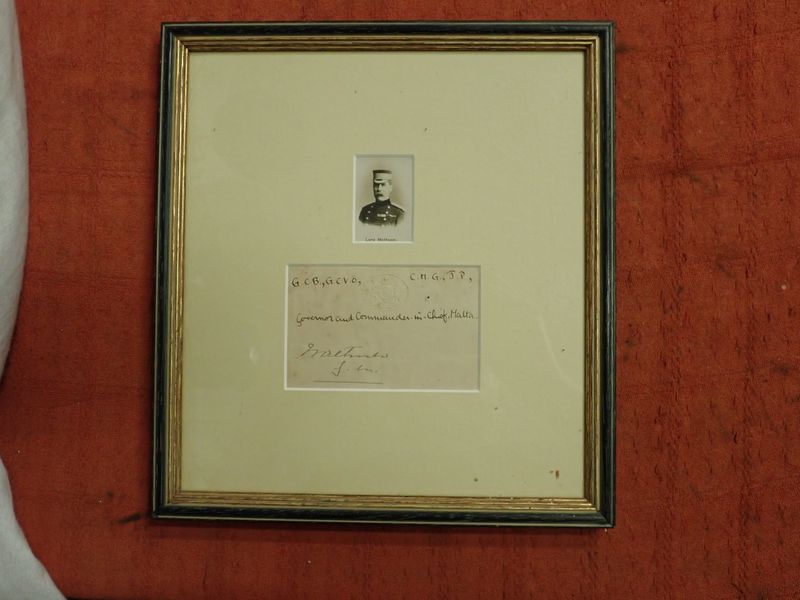 Lord Methuen.
G C B., G C V O, C M G, J P,
Governor and Commander-in-Chief, Malta.